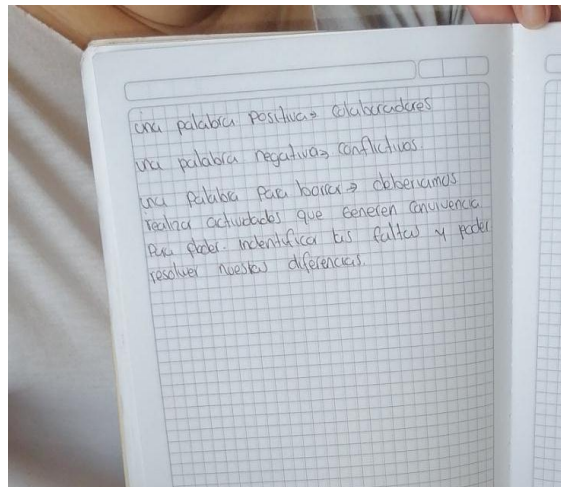 una palabra positiva→ colaboradores
una palabra negativa→ conflictivos.
una palabra para borrar→ deberiamos
realizar actividades que generen convivencia
Para poder. indentificar las faltas y poder
resolver nuestras diferencias.